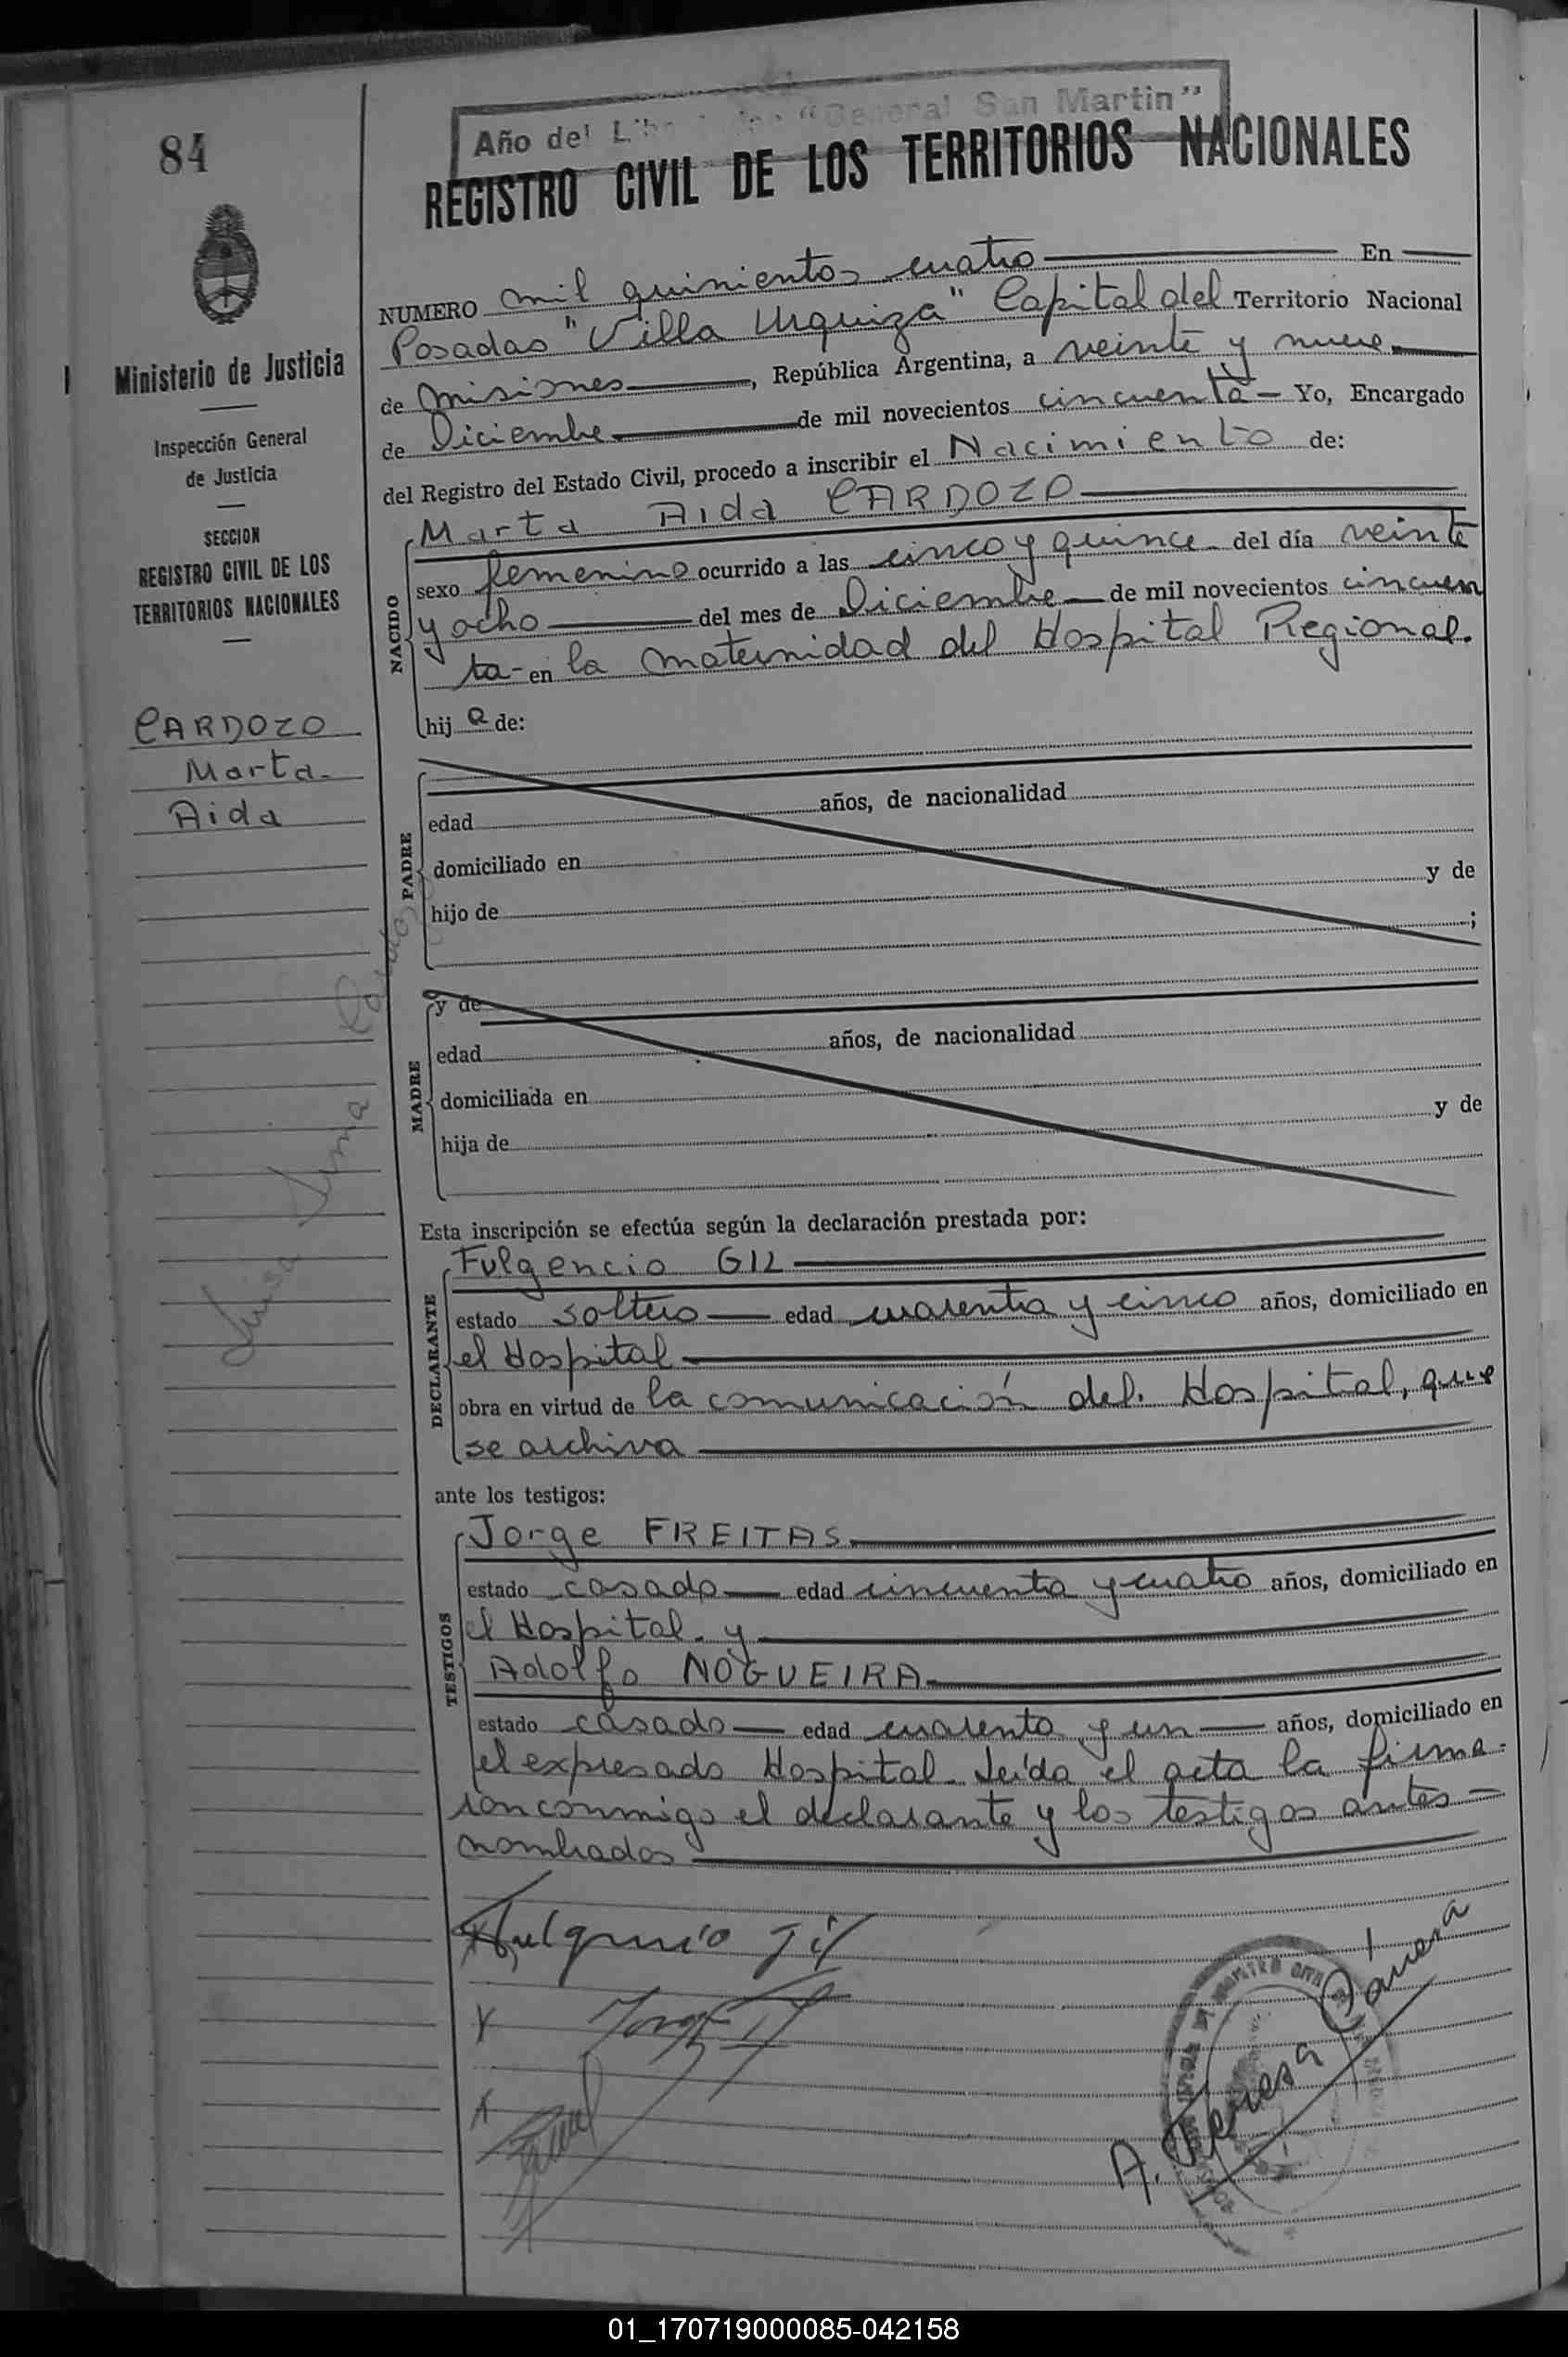 84
Año del Libertador "General San Martin"
REGISTRO CIVIL DE LOS TERRITORIOS NACIONALES
NUMERO mil quinientos cuatro En
Posadas "Villa Urquiza" Capital del Territorio Nacional
de Misiones, República Argentina, a veinte y nueve
de Diciembre de mil novecientos cincuenta - Yo, Encargado
del Registro del Estado Civil, procedo a inscribir el Nacimiento de:
Ministerio de Justicia
Inspección General
de Justicia
SECCION
REGISTRO CIVIL DE LOS
TERRITORIOS NACIONALES
CARDOZO
Marta
Aida
Luisa Cardozo
NACIDO
Marta Aida CARDOZO
sexo femenino ocurrido a las cinco y quince del día veinte
y ocho del mes de Diciembre de mil novecientos cincuen
ta - en la maternidad del Hospital Regional.
hij a de:
PADRE
edad años, de nacionalidad
domiciliado en
hijo de y de
;
MADRE
y de
edad años, de nacionalidad
domiciliada en
hija de y de
Esta inscripción se efectúa según la declaración prestada por:
DECLARANTE
Fulgencio GIL
estado soltero edad cuarenta y cinco años, domiciliado en
el Hospital
obra en virtud de la comunicación del Hospital, que
se archiva
ante los testigos:
TESTIGOS
Jorge FREITAS
estado casado edad cincuenta y cuatro años, domiciliado en
el Hospital - y
Adolfo NOGUEIRA
estado casado edad cuarenta y un años, domiciliado en
el expresado Hospital - Leída el acta la firma-
ron conmigo el declarante y los testigos antes -
nombrados
Fulgencio Gil
Jorge
A. Teresa
01_170719000085-042158